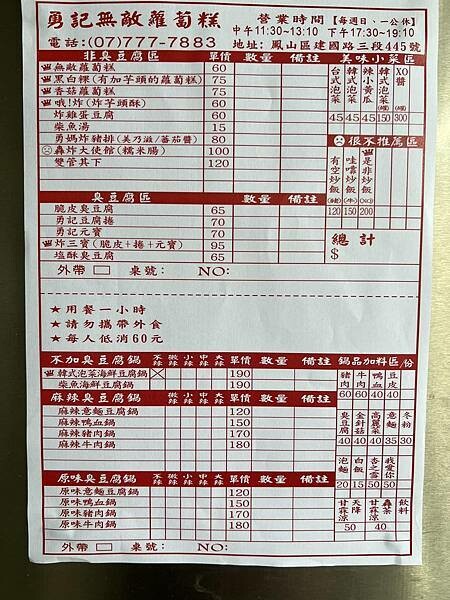 勇記無敵蘿蔔糕
營業時間【每週日、一公休】
中午11:30~13:10 下午17:30~19:10
電話:(07)777-7883
地址: 鳳山區建國路三段445號
非臭豆腐區 單價 數量 備註
無敵蘿蔔糕 60
黑白粿(有加芋頭的蘿蔔糕) 75
香菇蘿蔔糕 75
哦!炸(炸芋頭酥) 60
炸雞蛋豆腐 60
柴魚湯 15
勇媽炸豬排(美乃滋/蕃茄醬) 80
轟炸大使館(糯米腸) 100
雙管其下 120
美味小菜區
台式泡菜 45
韓式泡菜 45
辣小黃瓜 45
韓式泡菜(罐) 150
XO醬(罐) 300
很不推薦區
有空炒飯(豬) 120
哇噹炒飯(牛) 150
是非炒飯(XO) 200
總計
$
臭豆腐區 單價 數量 備註
脆皮臭豆腐 65
勇記豆腐捲 70
勇記元寶 70
炸三寶(脆皮+捲+元寶) 95
塩酥臭豆腐 65
外帶 桌號: NO:
★ 用餐一小時
★ 請勿攜帶外食
★ 每人低消60元
不加臭豆腐鍋 不辣 微辣 小辣 中辣 大辣 單價 數量 備註
韓式泡菜海鮮豆腐鍋 190
柴魚海鮮豆腐鍋 190
麻辣臭豆腐鍋 不辣 微辣 小辣 中辣 大辣 單價 數量 備註
麻辣意麵豆腐鍋 120
麻辣鴨血鍋 150
麻辣豬肉鍋 170
麻辣牛肉鍋 180
原味臭豆腐鍋 不辣 微辣 小辣 中辣 大辣 單價 數量 備註
原味意麵豆腐鍋 120
原味鴨血鍋 150
原味豬肉鍋 170
原味牛肉鍋 180
鍋品加料區/份
豬肉 60
牛肉 60
鴨血 40
豆皮 40
臭豆腐 40
金針菇 40
高麗菜 40
意麵 35
冬粉 30
泡麵 20
白飯 15
杏之雪 50
我愛你 50
飲料
天降甘霖涼 50
轟茶甘霖涼 40
外帶 桌號: NO: